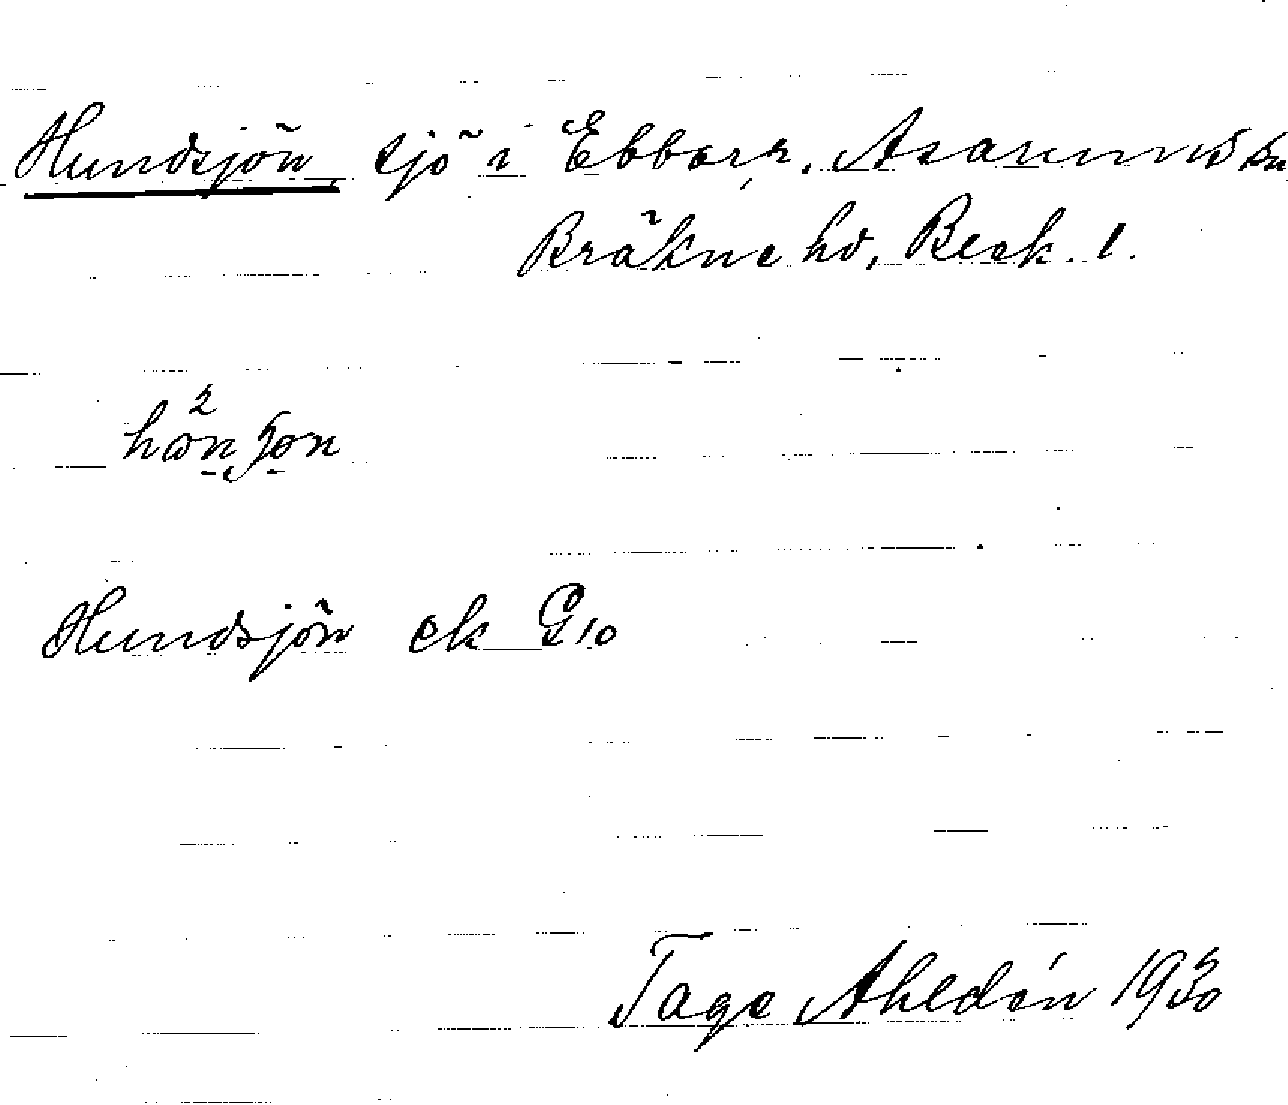 Hundsjön, sjö i Ebbarp, Asarums sn
Bräkne hd, Blek. l.
Hundsjön ek G10
Tage Ahldén 1930